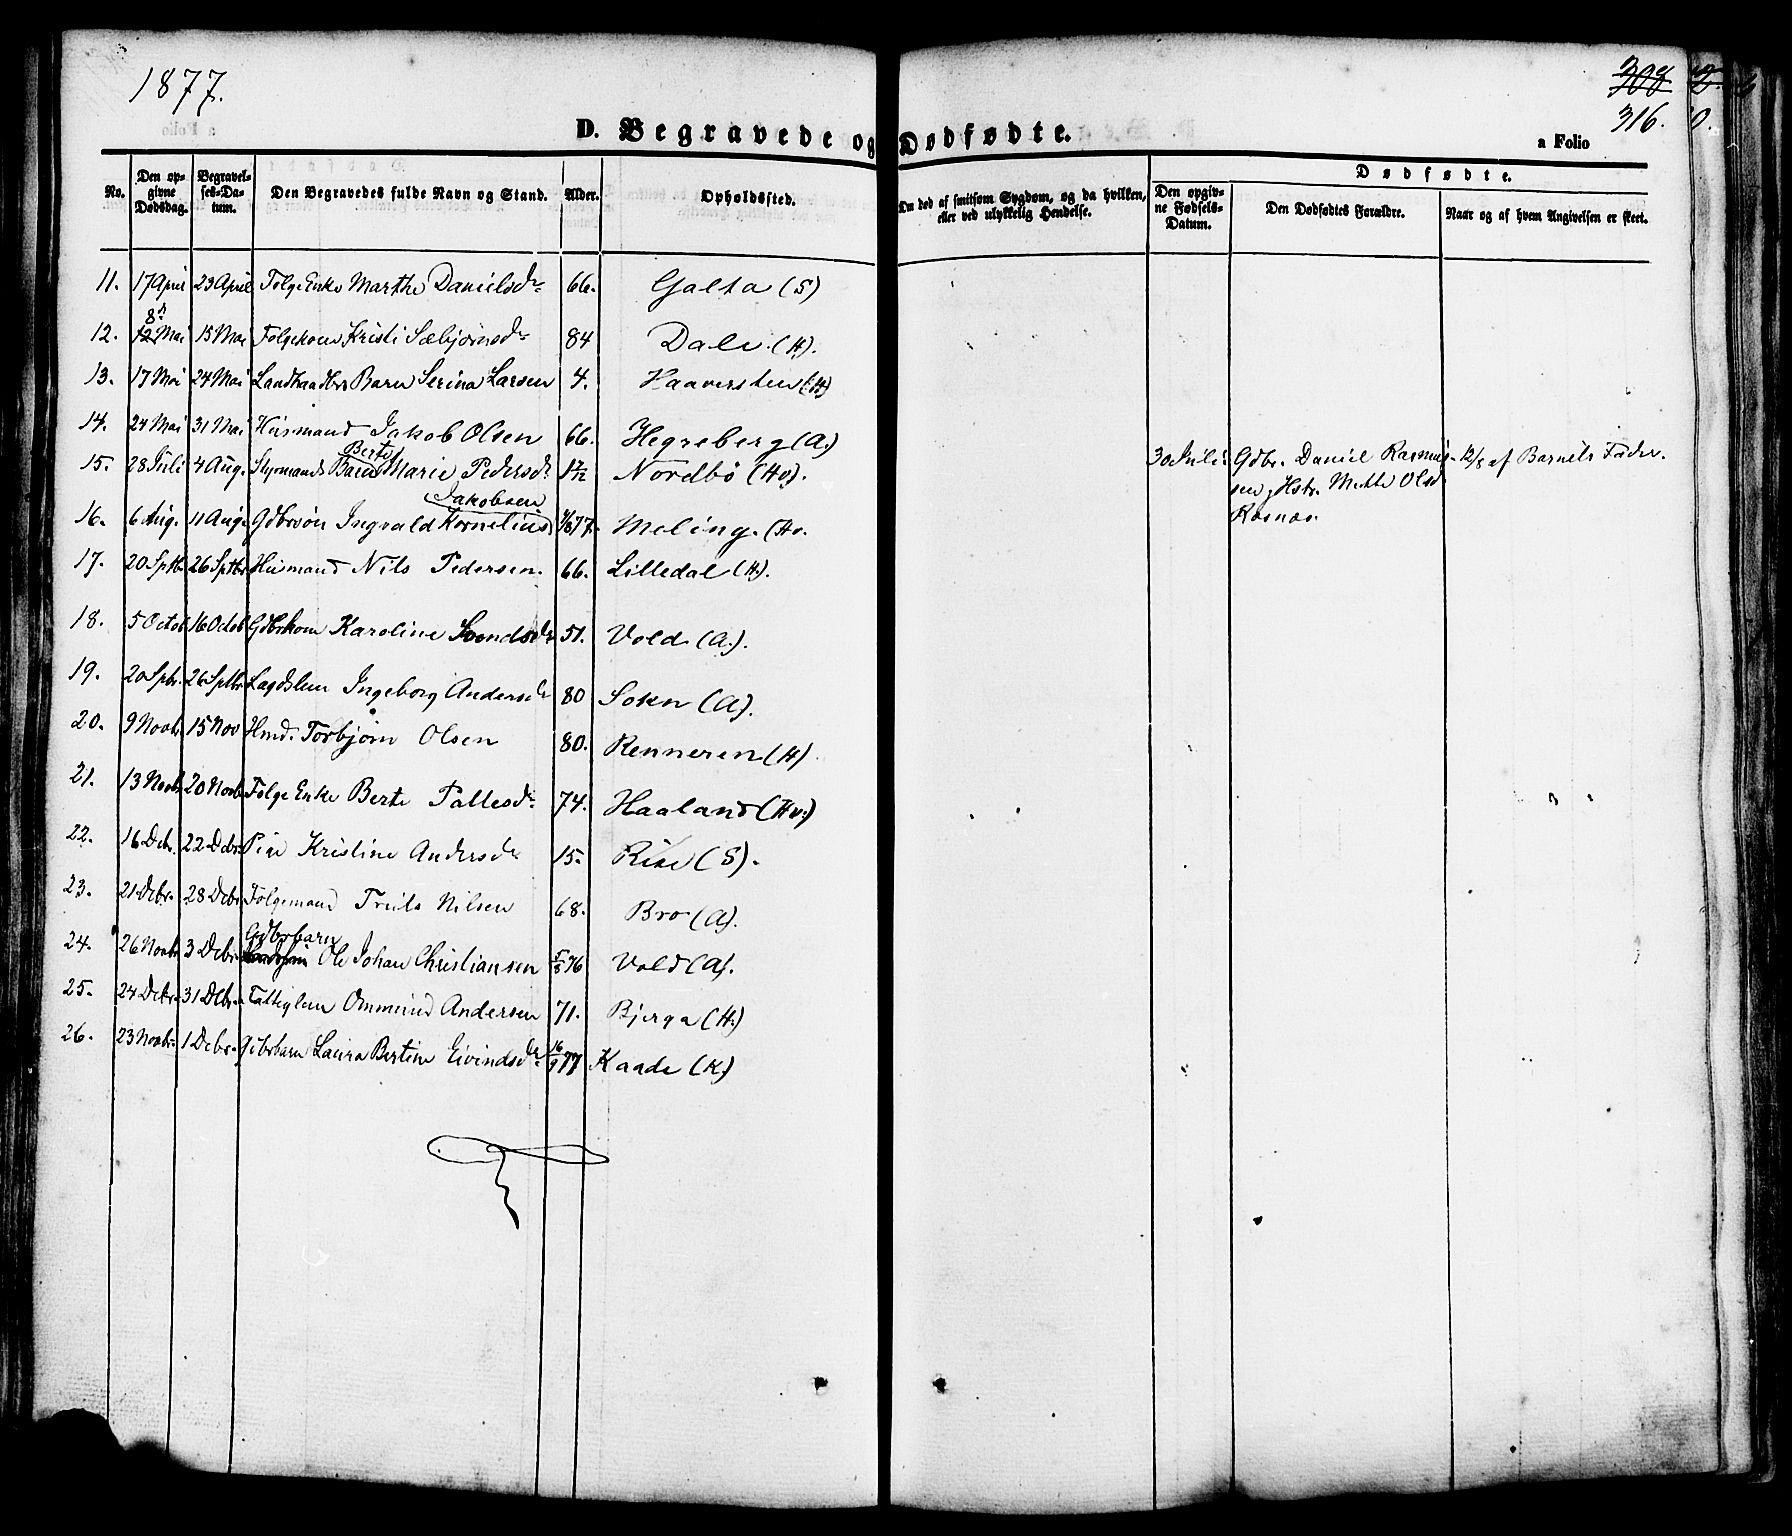 1877.
316.
D. Begravede og Dødfødte.
a Folio
No.
Den opgivne Dødsdag.
Begravelses-Datum.
Den Begravedes fulde Navn og Stand.
Alder.
Opholdssted.
Om død af smitsom Sygdom, og da hvilken, eller ved ulykkelig Hendelse.
Dødfødte.
Den opgivne Fødsels-Datum.
Den Dødfødtes Forældre.
Naar og af hvem Angivelsen er skeet.
11. 17 April 23 April Følge Enke Marthe Danielsdr 66. Galta (S)
12. 8de 12 Mai 15 Mai Følgekone Kristi Sæbjørnsdr 84 Dale (H).
13. 17 Mai 24 Mai Barn Serina Larsen 4. Haaversteen (H)
14. 24 Mai 31 Mai Huusmand Jakob Olsen 66. Hegreberg (A.)
15. 28 Juli 4 Aug. Barn Berte Marie Pedersdr Nordbö (Ho).
30 Juli Gdbr. Daniel Rasmus- 12/8 af Barnets Fader.
sen, Hstr. Mette Olsd
Jakobsen
16. 6 Aug. 11 Aug. Gdbrsön Ingvald Kornelius Meling. (Ho.
17. 20 Sptb. 26 Sptbr Huusmand Nils Pedersen. 66. Lilledal (H.).
18. 5 Octob 16 Octob Gdbrkone Karoline Svendsdr 51. Vold (A.).
19. 20 Spbr. 26 Sptbr Lægdslem Ingeborg Andersdr 80 Sokn (A).
20. 9 Novbr. 15 Nov Hmd. Torbjörn Olsen 80. Renneren (H)
21. 13 Novbr 20 Novbr Følge Enke Berte Pallesdr 74. Haaland (Hv.)
22. 16 Dcbr. 22 Dcbr. Pige Kristine Andersdr 15. Rise (S).
23. 21 Dcbr. 28 Dcbr Følgemand Truls Nilsen 68. Bro (A).
Gdbrbarn
24. 26 Novbr 3 Dcbr Ole Johan Christiansen 76 Vold (A).
25. 24 Dcbr. 31 Dcbr. Fattiglem Ommund Andersen 71. Bjerga (H.)
26. 23 Novbr. 1 Dcbr. Gdbrbarn Laura Bertine Eivindsdr 16/9 77 Kaade (K.)